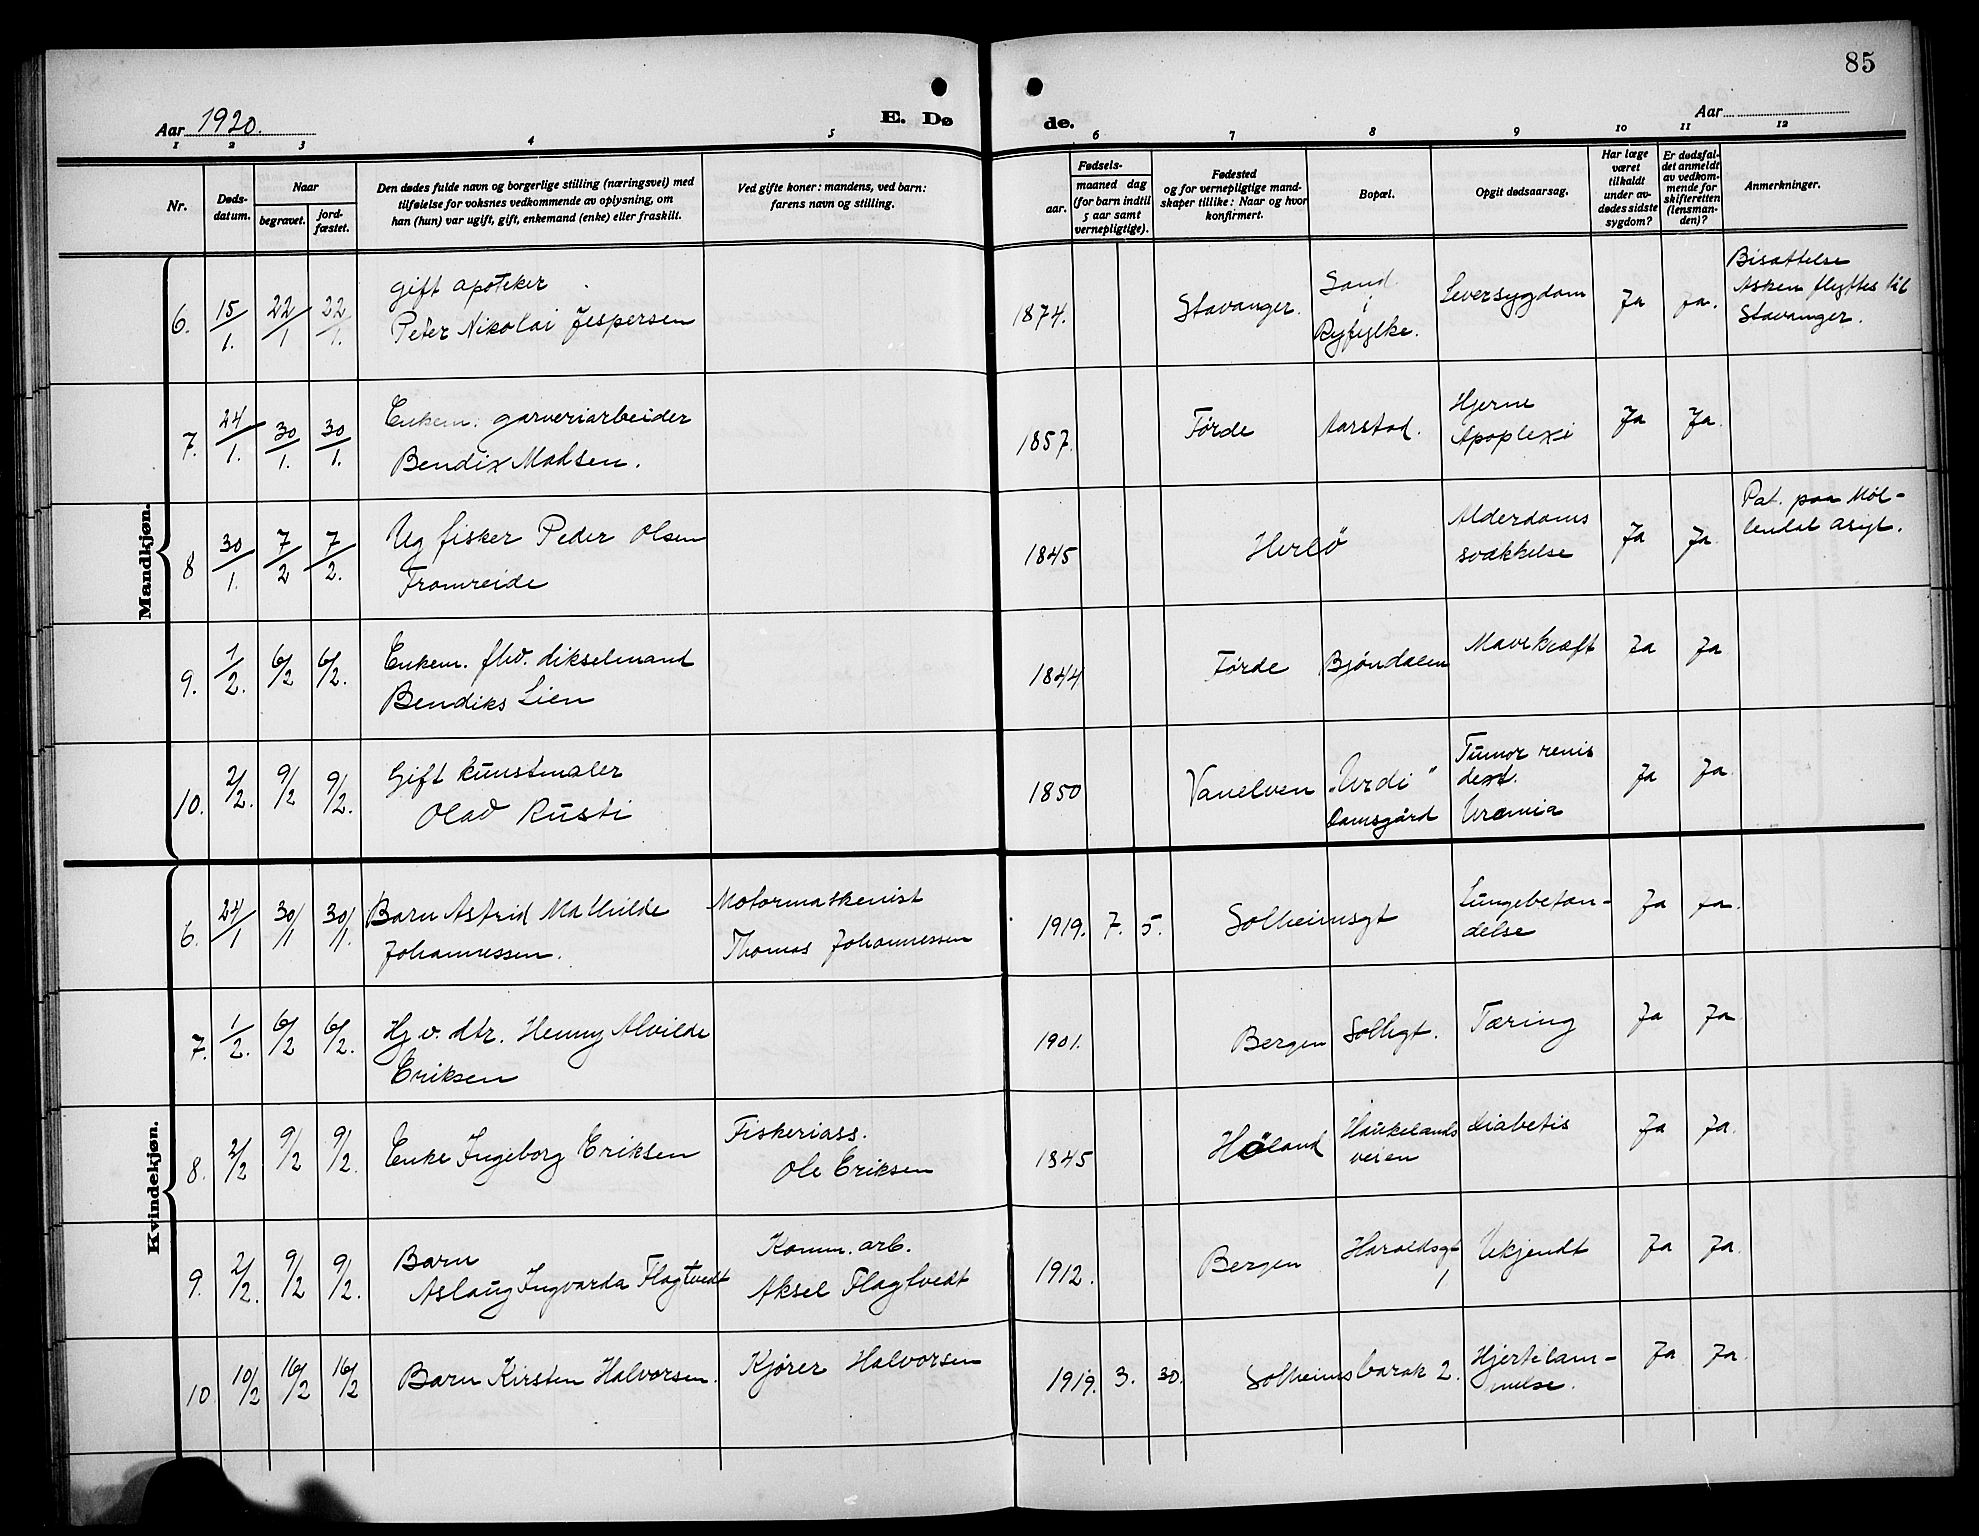 85
Aar 1920.
E. Døde.
Aar
1 2 3 4 5 6 7 8 9 10 11 12
Nr.
Døds-
datum.
Naar
begravet.
jord-
fæstet.
Den dødes fulde navn og borgerlige stilling (næringsvei) med
tilføielse for voksnes vedkommende av oplysning, om
han (hun) var ugift, gift, enkemand (enke) eller fraskilt.
Ved gifte koner: mandens, ved barn:
farens navn og stilling.
Fødsels-
aar.
maaned dag
(for barn indtil
5 aar samt
vernepligtige).
Fødested
og for vernepligtige mand-
skaper tillike: Naar og hvor
konfirmert.
Bopæl.
Opgit dødsaarsag.
Har læge
været
tilkaldt
under av-
dødes sidste
sygdom?
Er dødsfal-
det anmeldt
av vedkom-
mende for
skifteretten
(lensman-
den)?
Anmerkninger.
Mandkjøn.
6. 15/1. 22/1 22/1.
gift apoteker
Peter Nikolai Jespersen
1874.
Stavanger.
Sand
i
Ryfylke.
Leversygdom
Ja
Ja.
Bisættelse
Asken flyttes til
Stavanger.
7. 24/1. 30/1. 30/1.
Enkem. garveriarbeider
Bendix Madsen.
1857.
Førde
Aarstad.
Hjerne
Apoplexi
Ja
Ja.
8 30/1. 7/2 7/2.
Ug fisker Peder Olsen
Tromreide
1845
Herlö
Alderdoms
svækkelse
Ja
Ja.
Pat. paa Möl-
lendal asigt.
9. 1/2. 6/2 6/2.
Enkem. fhv. dikselmand
Bendiks Lien
1844
Førde
Bjöndalen
Mavekræft
Ja
Ja
10. 2/2. 9/2 9/2.
Gift kunstmaler
Olav Rusti
1850
Vanelven
"Urdi"
Damsgård
Tumor renis
dext.
Uræmia
Ja
Ja.
Kvindekjøn.
6. 24/1 30/1 30/1.
Barn Astrid Mathilde
Johannessen.
Motormaskenist
Thomas Johannessen
1919. 7. 5.
Solheimsgt
Lungebetæn-
delse
Ja
Ja.
7. 1/2. 6/2 6/2.
Hj v. dtr. Henny Alvilde
Eriksen
1901.
Bergen
Solhgt.
Tæring
Ja
Ja
8. 2/2 9/2 9/2.
Enke Ingeborg Eriksen
Fiskeriass.
Ole Eriksen
1845
Höland
Haukelands
veien
diabetis
Ja
Ja.
9. 2/2. 9/2 9/2.
Barn
Aslaug Ingvarda Flagtvedt
Komm. arb.
Aksel Flagtvedt
1912.
Bergen
Haraldsgt
1
Ukjendt
Ja
Ja.
10. 10/2 16/2 16/2
Barn Kirsten Halvorsen.
Kjører Halvorsen
1919. 3. 30.
Solheimsbarak 2.
Hjertelam-
melse.
Ja
Ja.